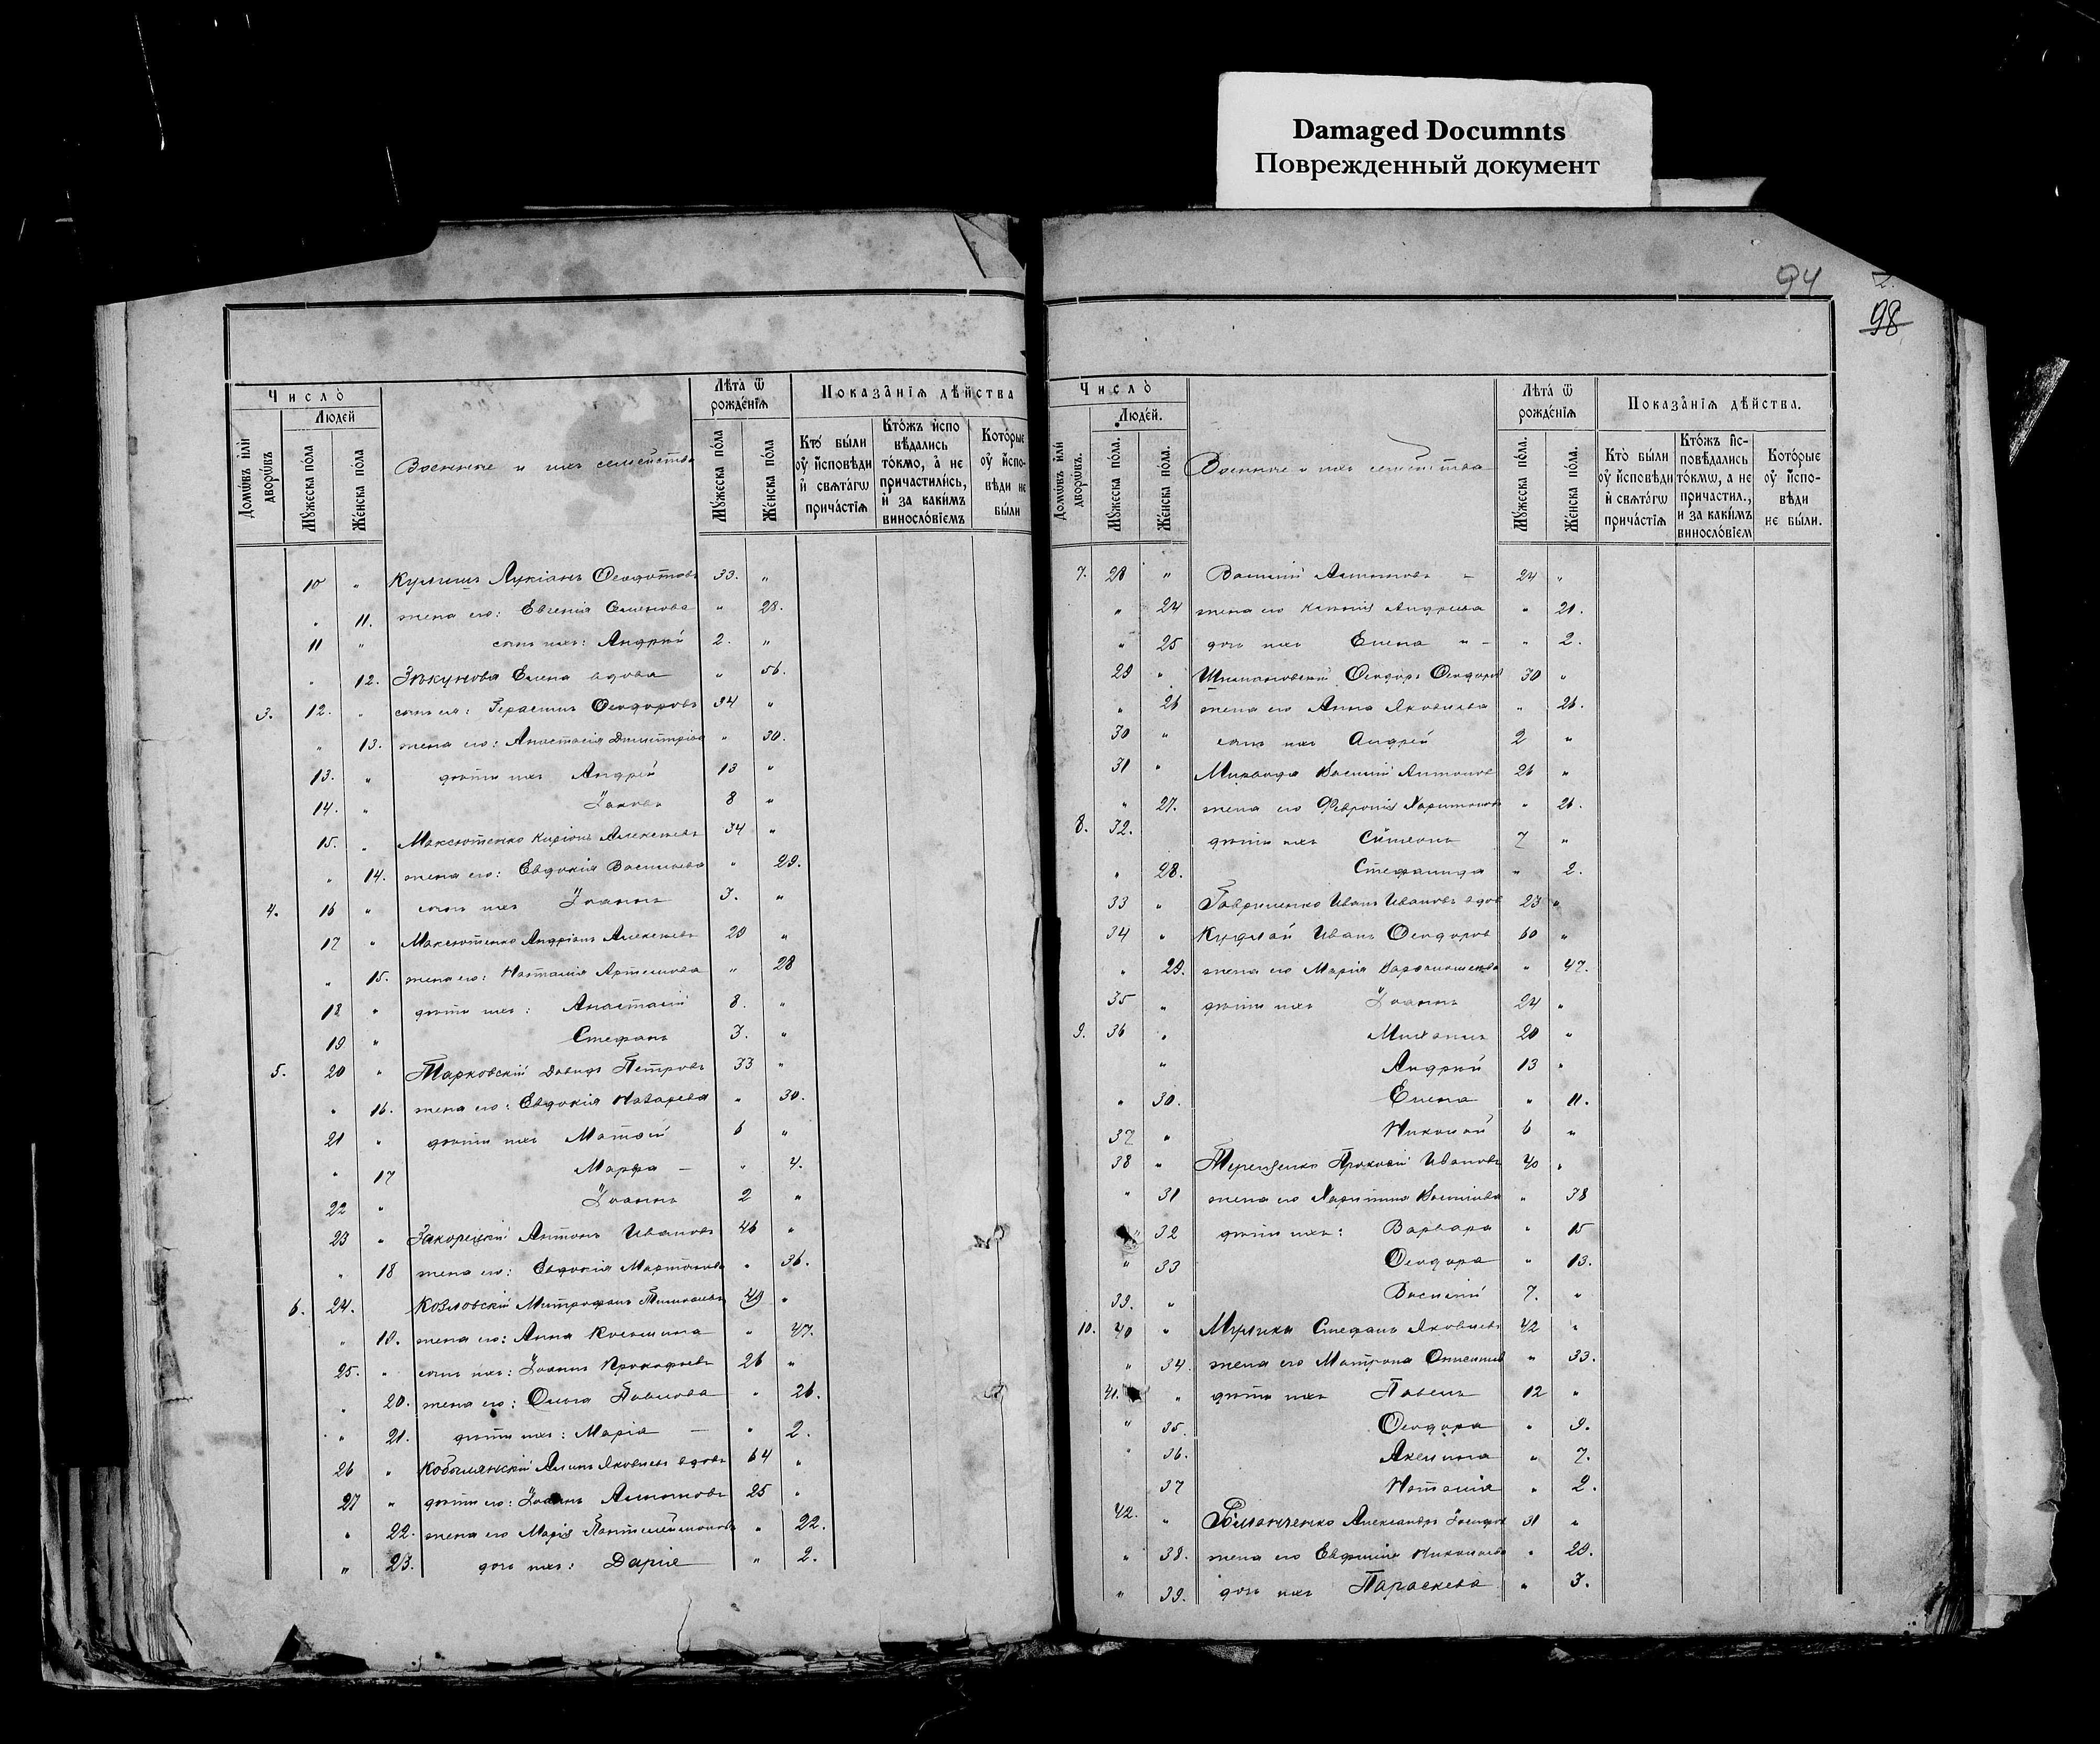 Damaged Documnts
Поврежденный документ
94
2.
98
Число̀
Людей
Домѡ́въ и҆лѝ дворѡ́въ
Мꙋ́жеска по́ла
Же́нска по́ла
Военные и ихъ семейства
Лѣ́та ѿ рожде́нїѧ
Мꙋ́жеска по́ла
Же́нска по́ла
Показа̑нїѧ дѣ́йства
Кто̀ бы́ли оу҆ и҆сповѣди и҆ свѧта́гѡ прича́стїѧ
Кто́жъ и҆спо вѣдались то́кмо, а҆ не причасти́лись, и҆ за каки́мъ винословїемъ
Кото́рые оу҆ и҆спо- вѣди не бы́ли
10 " Кулишъ Лукіанъ Ѳеодотовъ 33. "
" 11. жена его: Евгенія Семенова " 28.
11 " сынъ ихъ: Андрей 2. "
" 12. Зѣкунова Елена вдова " 56.
3. 12. " сынъ ея: Герасимъ Ѳеодоровъ 34 "
" 13. жена его: Анастасія Димитріева " 30.
13. " дѣти ихъ Андрей 13 "
14. " Іаковъ 8 "
15. " Максютенко Алексѣевъ 34 "
" 14. жена его: Евдокія Васильева " 29.
4. 16 " сынъ ихъ Іоаннъ 3. "
17 " Максютенко Андріанъ Алексѣевъ 29 "
" 15. жена его: Наталія Артемова " 28
18 " дѣти ихъ: Анастасій 8. "
19 " Стефанъ 3. "
5. 20 " Тарковскій Давидъ Петровъ 33 "
" 16. жена его: Евдокія Назарева " 30.
21 " дѣти ихъ Матѳей 6 "
" 17 Марфа — " 4.
22 " Іоаннъ 2 "
23 " Закорецкій Антонъ Ивановъ 46 "
" 18 жена его: Евдокія Мартинова " 36.
6. 24. Козловскій Митрофанъ 49 "
" 19. жена его: Анна " 47.
25. " сынъ ихъ: Іоаннъ Прокофьевъ 26 "
" 20. жена его: Ольга Павлова " 26.
" 21. дѣти ихъ: Марія — " 2.
26 " Кобылянскій Яковлевъ вдовъ 64 "
27 " дѣти его: Іоаннъ 25 "
" 22. жена его Марія Пантелеймонова " 22.
" 23. дочь ихъ: Дарія " 2.
Число̀
Людей.
Домѡ́въ и҆лѝ дворѡ́въ.
Мꙋ́жеска по́ла.
Же́нска по́ла.
Военные и ихъ семейства
Лѣ́та ѿ рожде́нїѧ
Мꙋ́жеска по́ла.
Же́нска по́ла.
Показа̑нїѧ дѣ́йства.
Кто̀ бы́ли оу҆ и҆сповѣди и҆ свѧта́гѡ прича́стїѧ
Кто́жъ и҆с- повѣдались то́кмѡ, а не причастил., и за каки́мъ винословїем
Кото́рые оу҆ и҆спо- вѣди не бы́ли.
7. 28 " Василій — 24 "
" 24 жена его Андреева " 21.
" 25 дочь ихъ Елена " — " 2.
29 " Ѳеодоръ Ѳеодоровъ 30 "
" 26 жена его Анна Яковлева " 26.
30 " сынъ ихъ Андрей 2 "
31 " Василій Антоновъ 26 "
" 27. жена его Февронія Харитонова " 26.
8. 32. дѣти ихъ Симеонъ 7 "
" 28. Стефанида " 2.
33 " Гавриленко Иванъ Ивановъ вдов 23 "
34 " Кудлай Иванъ Ѳеодоров 60 "
" 29. жена его Марія " 47.
35 " дѣти ихъ Іоаннъ 24 "
9. 36 " Михаилъ 20 "
" Андрей 13 "
" 30. Елена " 11.
37 " Николай 6 "
38 " Терещенко Прокопій Ивановъ 40 "
" 31 жена его Харитина Васильева " 38
" 32 дѣти ихъ: Варвара " 15
" 33 Ѳеодора " 13.
39. " Василій 7. "
10. 40 " Мулика Стефанъ Яковлевъ 42 "
" 34. жена его Матрона " 33.
41. " дѣти ихъ Павелъ 12 "
" 35. Ѳеодора " 9.
" 36. Акелина " 7.
37 Наталія " 2.
42. " Александръ Іосифов 31 "
" 38. жена его Евфимія Николаева " 29.
" 39. дочь ихъ Параскева " 3.